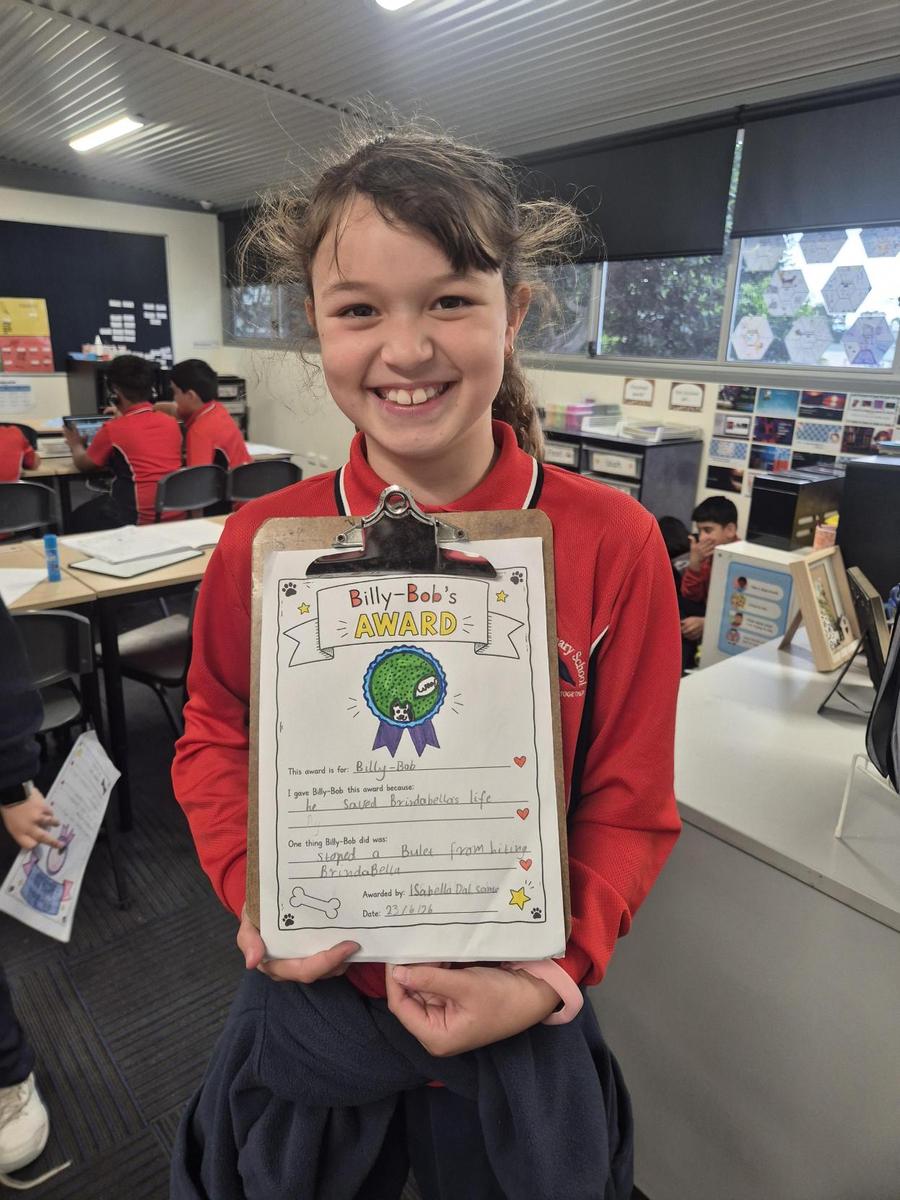 Billy-Bob's
AWARD
WOOF
This award is for: Billy-Bob
I gave Billy-Bob this award because:
he saved Brindabella's life
By
One thing Billy-Bob did was:
stoped a Bulet from hiting
BrindaBella
Awarded by: ISabella Dal
Date: 23/6/26
ary School